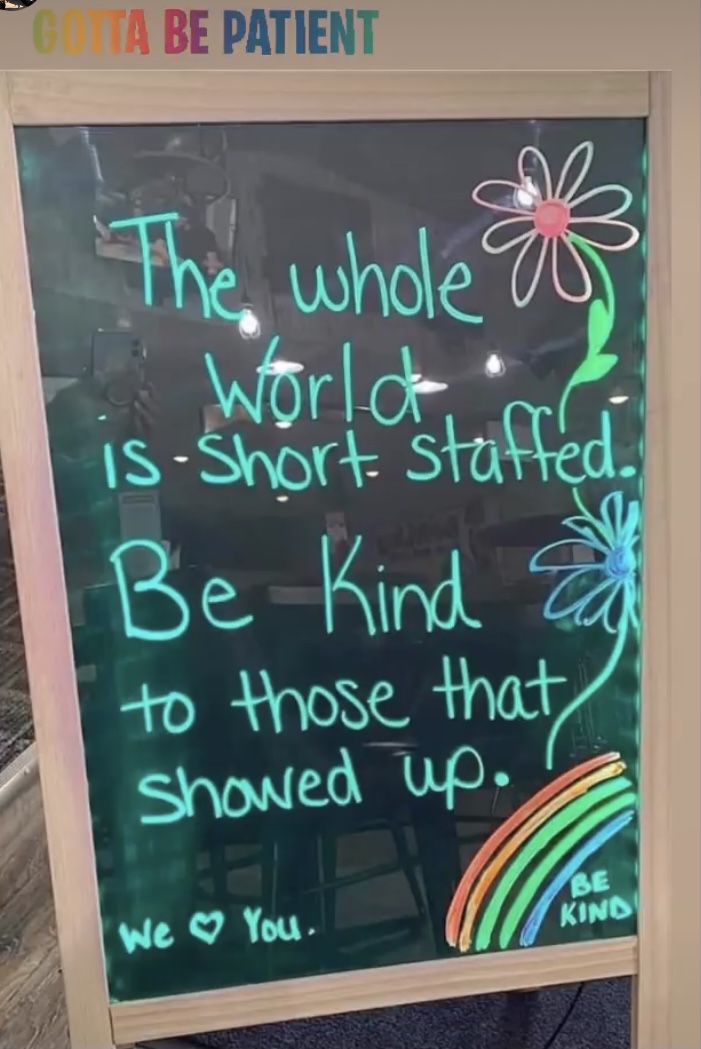 GOTTA BE PATIENT
The whole
World
is short staffed.
Be Kind
to those that
showed up.
We ♡ You.
BE
KIND